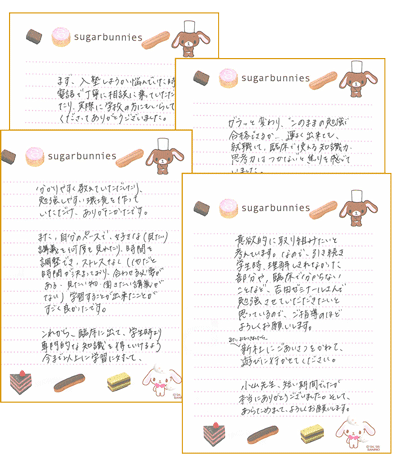 sugarbunnies
まず、入塾しようか悩んでいた時
電話で丁寧に相談に乗っていただい
たり、実際に学校の方にもいらして
くださってありがとうございました。
sugarbunnies
ガラッと変わり、"このままの勉強で
合格できるか、運よく出来ても、
就職して、臨床で使える知識力、
思考力はつかないと焦りを感じて
いました。
sugarbunnies
分かりやすく教えていただいたり、
勉強しやすい環境を作って
いただけて、ありがたかったです。
また、自分のペースで、好きな(見たい)
講義を何度も見れたり、時間を
調整でき、ストレスなく
時間が決まっており、合わせる必要が
ある・見たい物・聞きたい講義が
ない)学習することが出来たことが
すごく良かったです。
これから、臨床に出て、学生時より
専門的な知識を得ていけるよう
今まで以上に学習に
sugarbunnies
意欲的に取り組みたいと
考えています。なので、引き続き
学生時、理解しきれなかった
部分や、臨床で分からない
ことなど、吉田ゼミナールさんで
勉強させていただきたいと
思っているので、ご指導のほど
よろしくお願いします。
新社にごあいさつをかねて、
遊びに行かせてください。
小山先生、短い期間でしたが
本当にありがとうございました。そして、
あらためまして、よろしくお願いします。